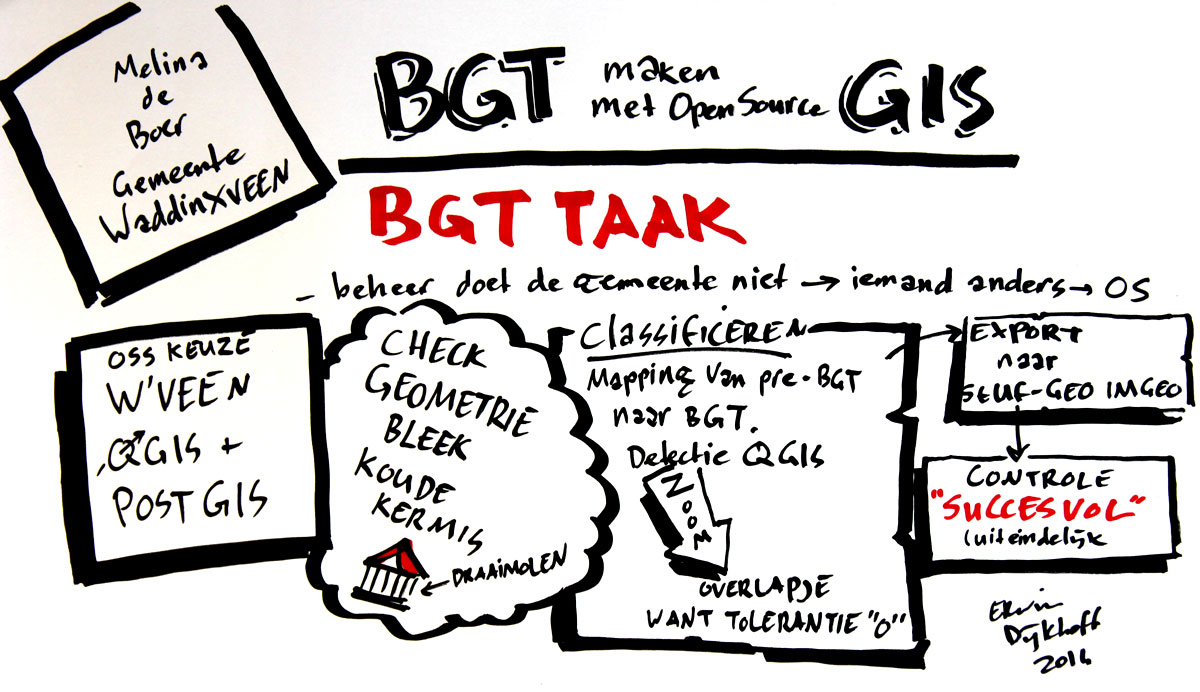 Melina
de
Boer
Gemeente
WaddinXVEEN
BGT maken
met OpenSource GIS
BGT TAAK
- beheer doet de Gemeente niet → iemand anders → OS
OSS KEUZE
W'VEEN
QGIS +
POSTGIS
CHECK
GEOMETRIE
BLEEK
KOUDE
KERMIS
← DRAAIMOLEN
Classificeren
Mapping van pre-BGT
naar BGT.
Detectie QGIS
ZOOM
OVERLAPJE
WANT TOLERANTIE "0"
EXPORT
naar
StUF-GEO IMGEO
CONTROLE
"SUCCESVOL"
(uiteindelijk
Erwin
Dijkhoff
2016